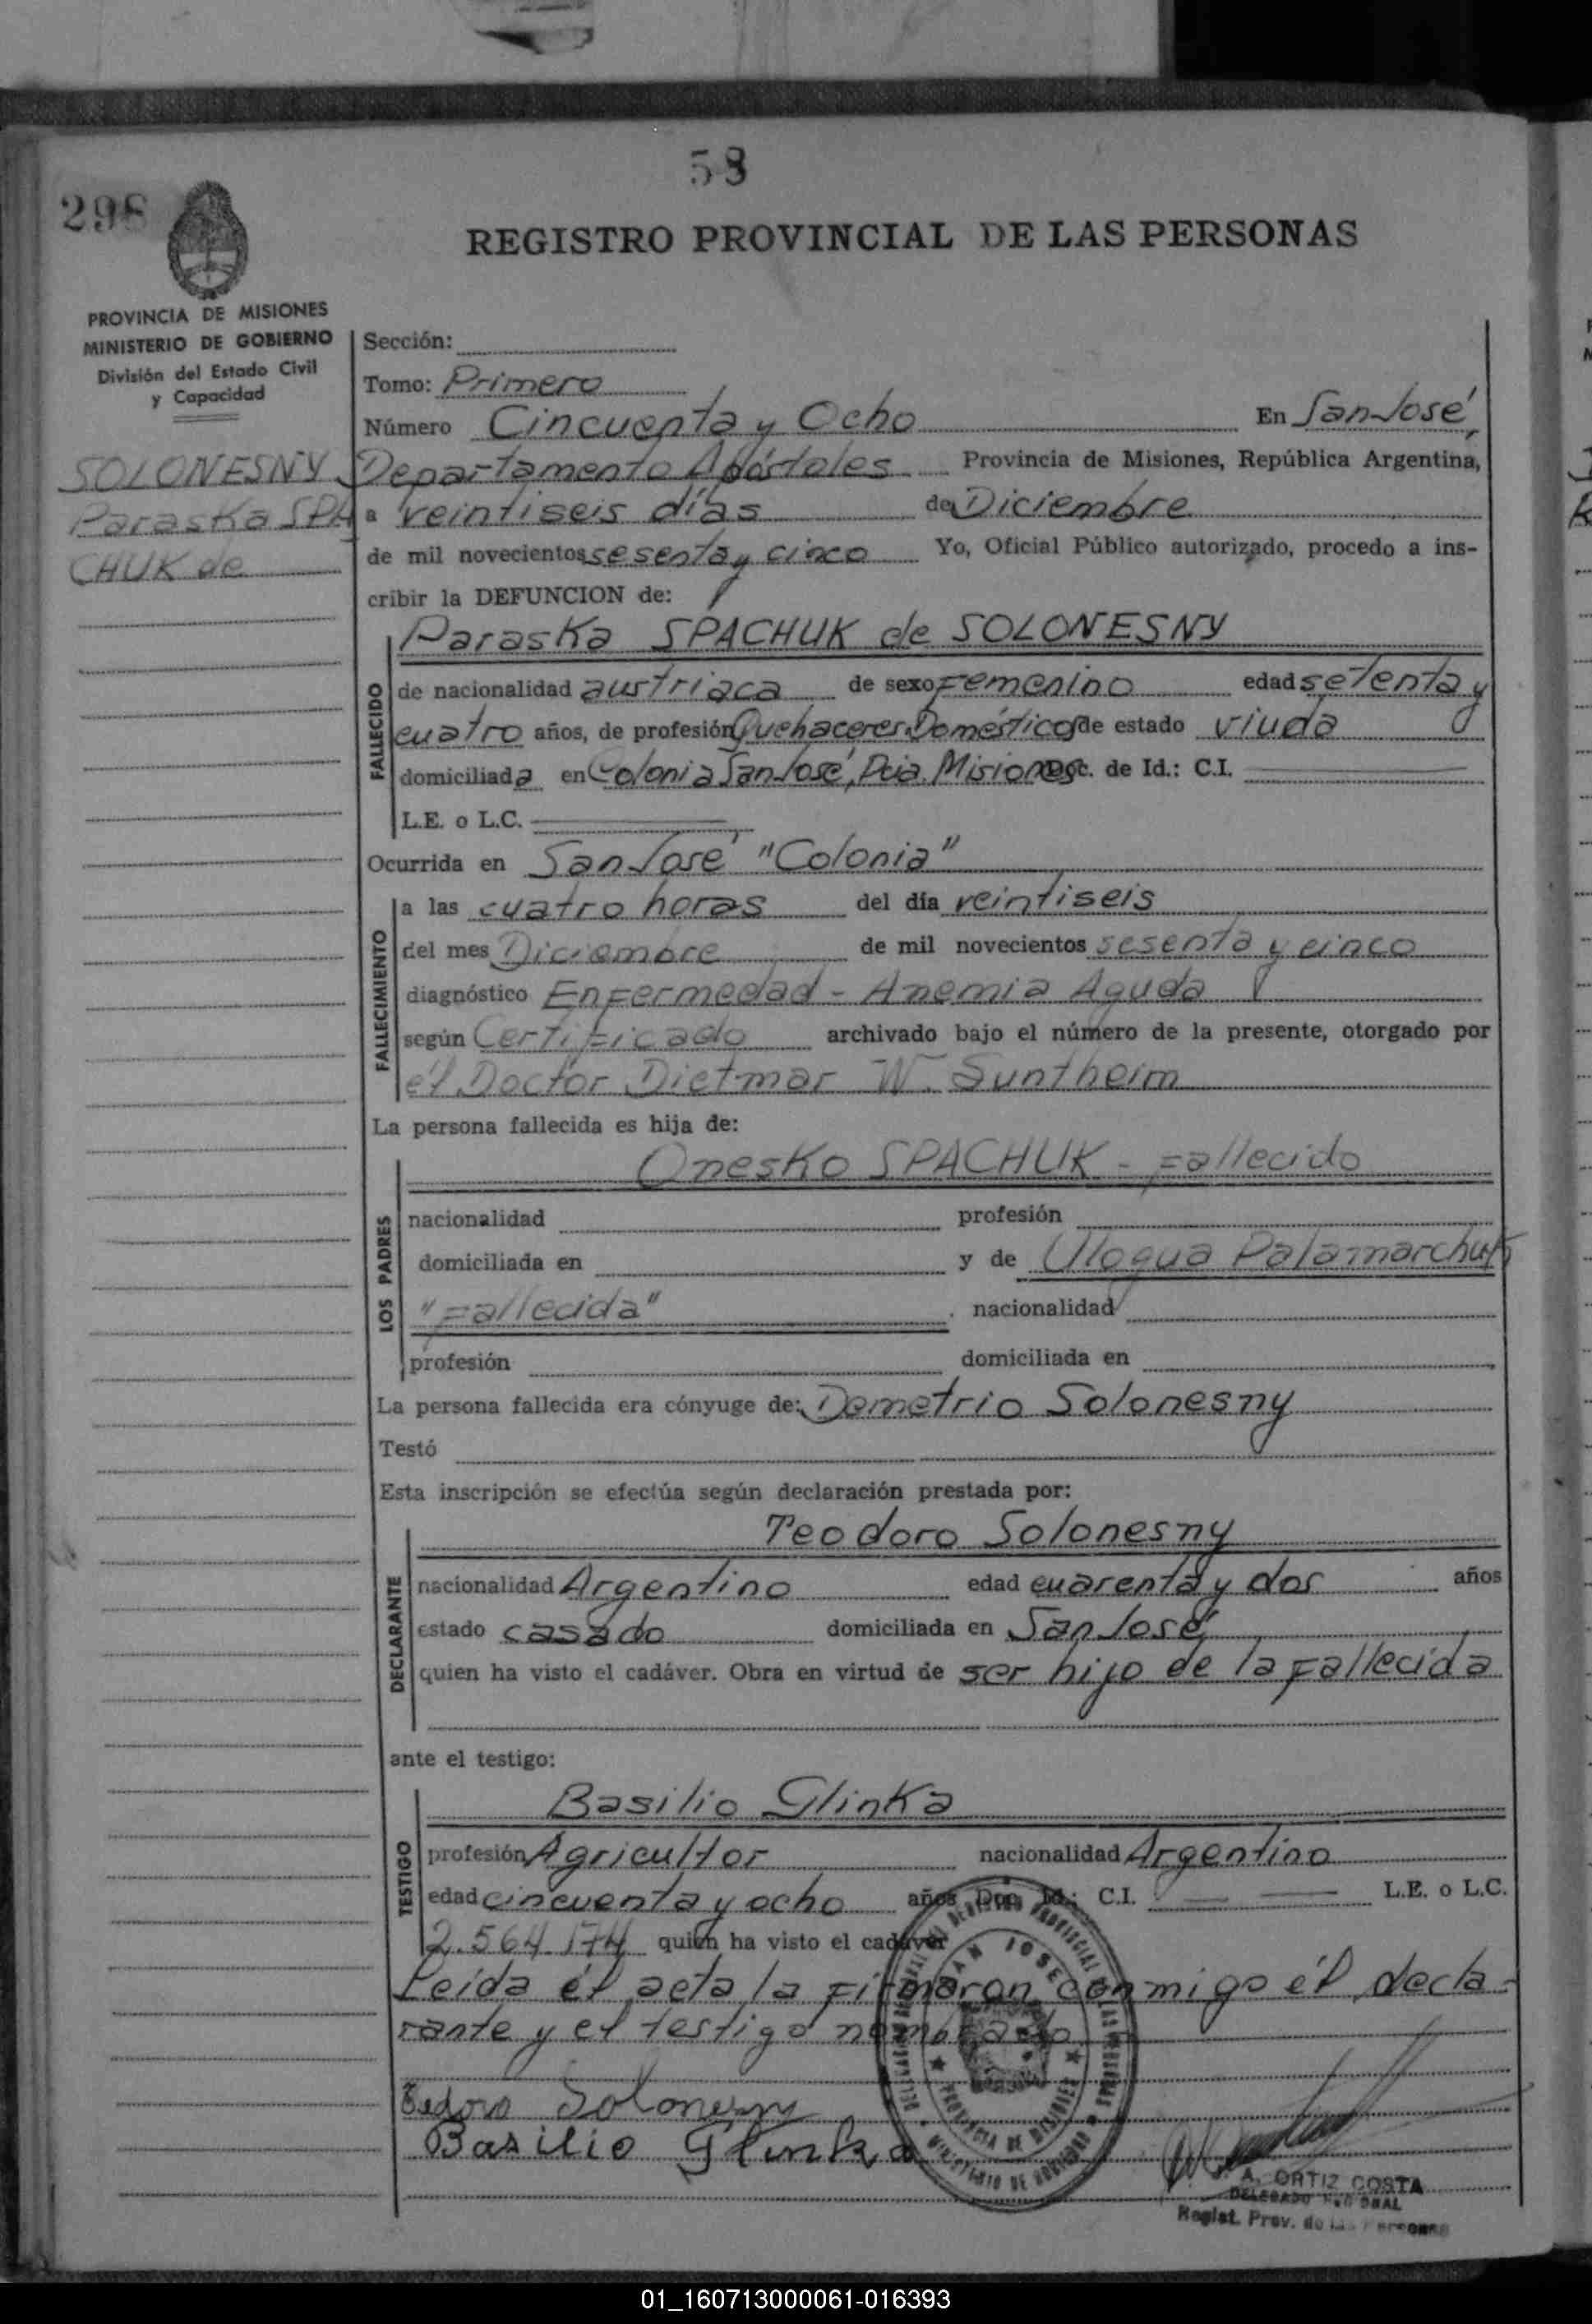 58
298
REGISTRO PROVINCIAL DE LAS PERSONAS
PROVINCIA DE MISIONES
MINISTERIO DE GOBIERNO
División del Estado Civil
y Capacidad
SOLONESNY
Paraska SPA
CHUK de
Sección:
Tomo: Primero
Número Cincuenta y Ocho En San José,
Departamento Apóstoles Provincia de Misiones, República Argentina,
a veintiseis días de Diciembre
de mil novecientos sesenta y cinco Yo, Oficial Público autorizado, procedo a ins-
cribir la DEFUNCION de:
Paraska SPACHUK de SOLONESNY
FALLECIDO
de nacionalidad austriaca de sexo Femenino edad setenta y
cuatro años, de profesión Quehaceres Domésticos de estado viuda
domiciliada en Colonia San José, Pcia. Misiones Doc. de Id.: C.I.
L.E. o L.C.
Ocurrida en San José "Colonia"
FALLECIMIENTO
a las cuatro horas del día veintiseis
del mes Diciembre de mil novecientos sesenta y cinco
diagnóstico Enfermedad - Anemia Aguda
según Certificado archivado bajo el número de la presente, otorgado por
él Doctor Dietmar W. Suntheim
La persona fallecida es hija de:
LOS PADRES
Onesko SPACHUK - Fallecido
nacionalidad profesión
domiciliada en y de Ulogua Palamarchuk
"Fallecida" . nacionalidad
profesión domiciliada en
La persona fallecida era cónyuge de: Demetrio Solonesny
Testó
Esta inscripción se efectúa según declaración prestada por:
DECLARANTE
Teodoro Solonesny
nacionalidad Argentino edad cuarenta y dos años
estado casado domiciliada en San José
quien ha visto el cadáver. Obra en virtud de ser hijo de la Fallecida
ante el testigo:
TESTIGO
Basilio Glinka
profesión Agricultor nacionalidad Argentino
edad cincuenta y ocho años Doc. Id.: C.I. L.E. o L.C.
2.564.174 quien ha visto el cadáver
Leida él acta la Firmaron conmigo él decla-
rante y el testigo nombrado
Tedoro Solonesny
Basilio Glinka
SAN JOSE
PROVINCIA DE MISIONES
MINISTERIO DE GOBIERNO
A. ORTIZ COSTA
DELEGADO REGIONAL
Regist. Prov. de las Personas
01_160713000061-016393